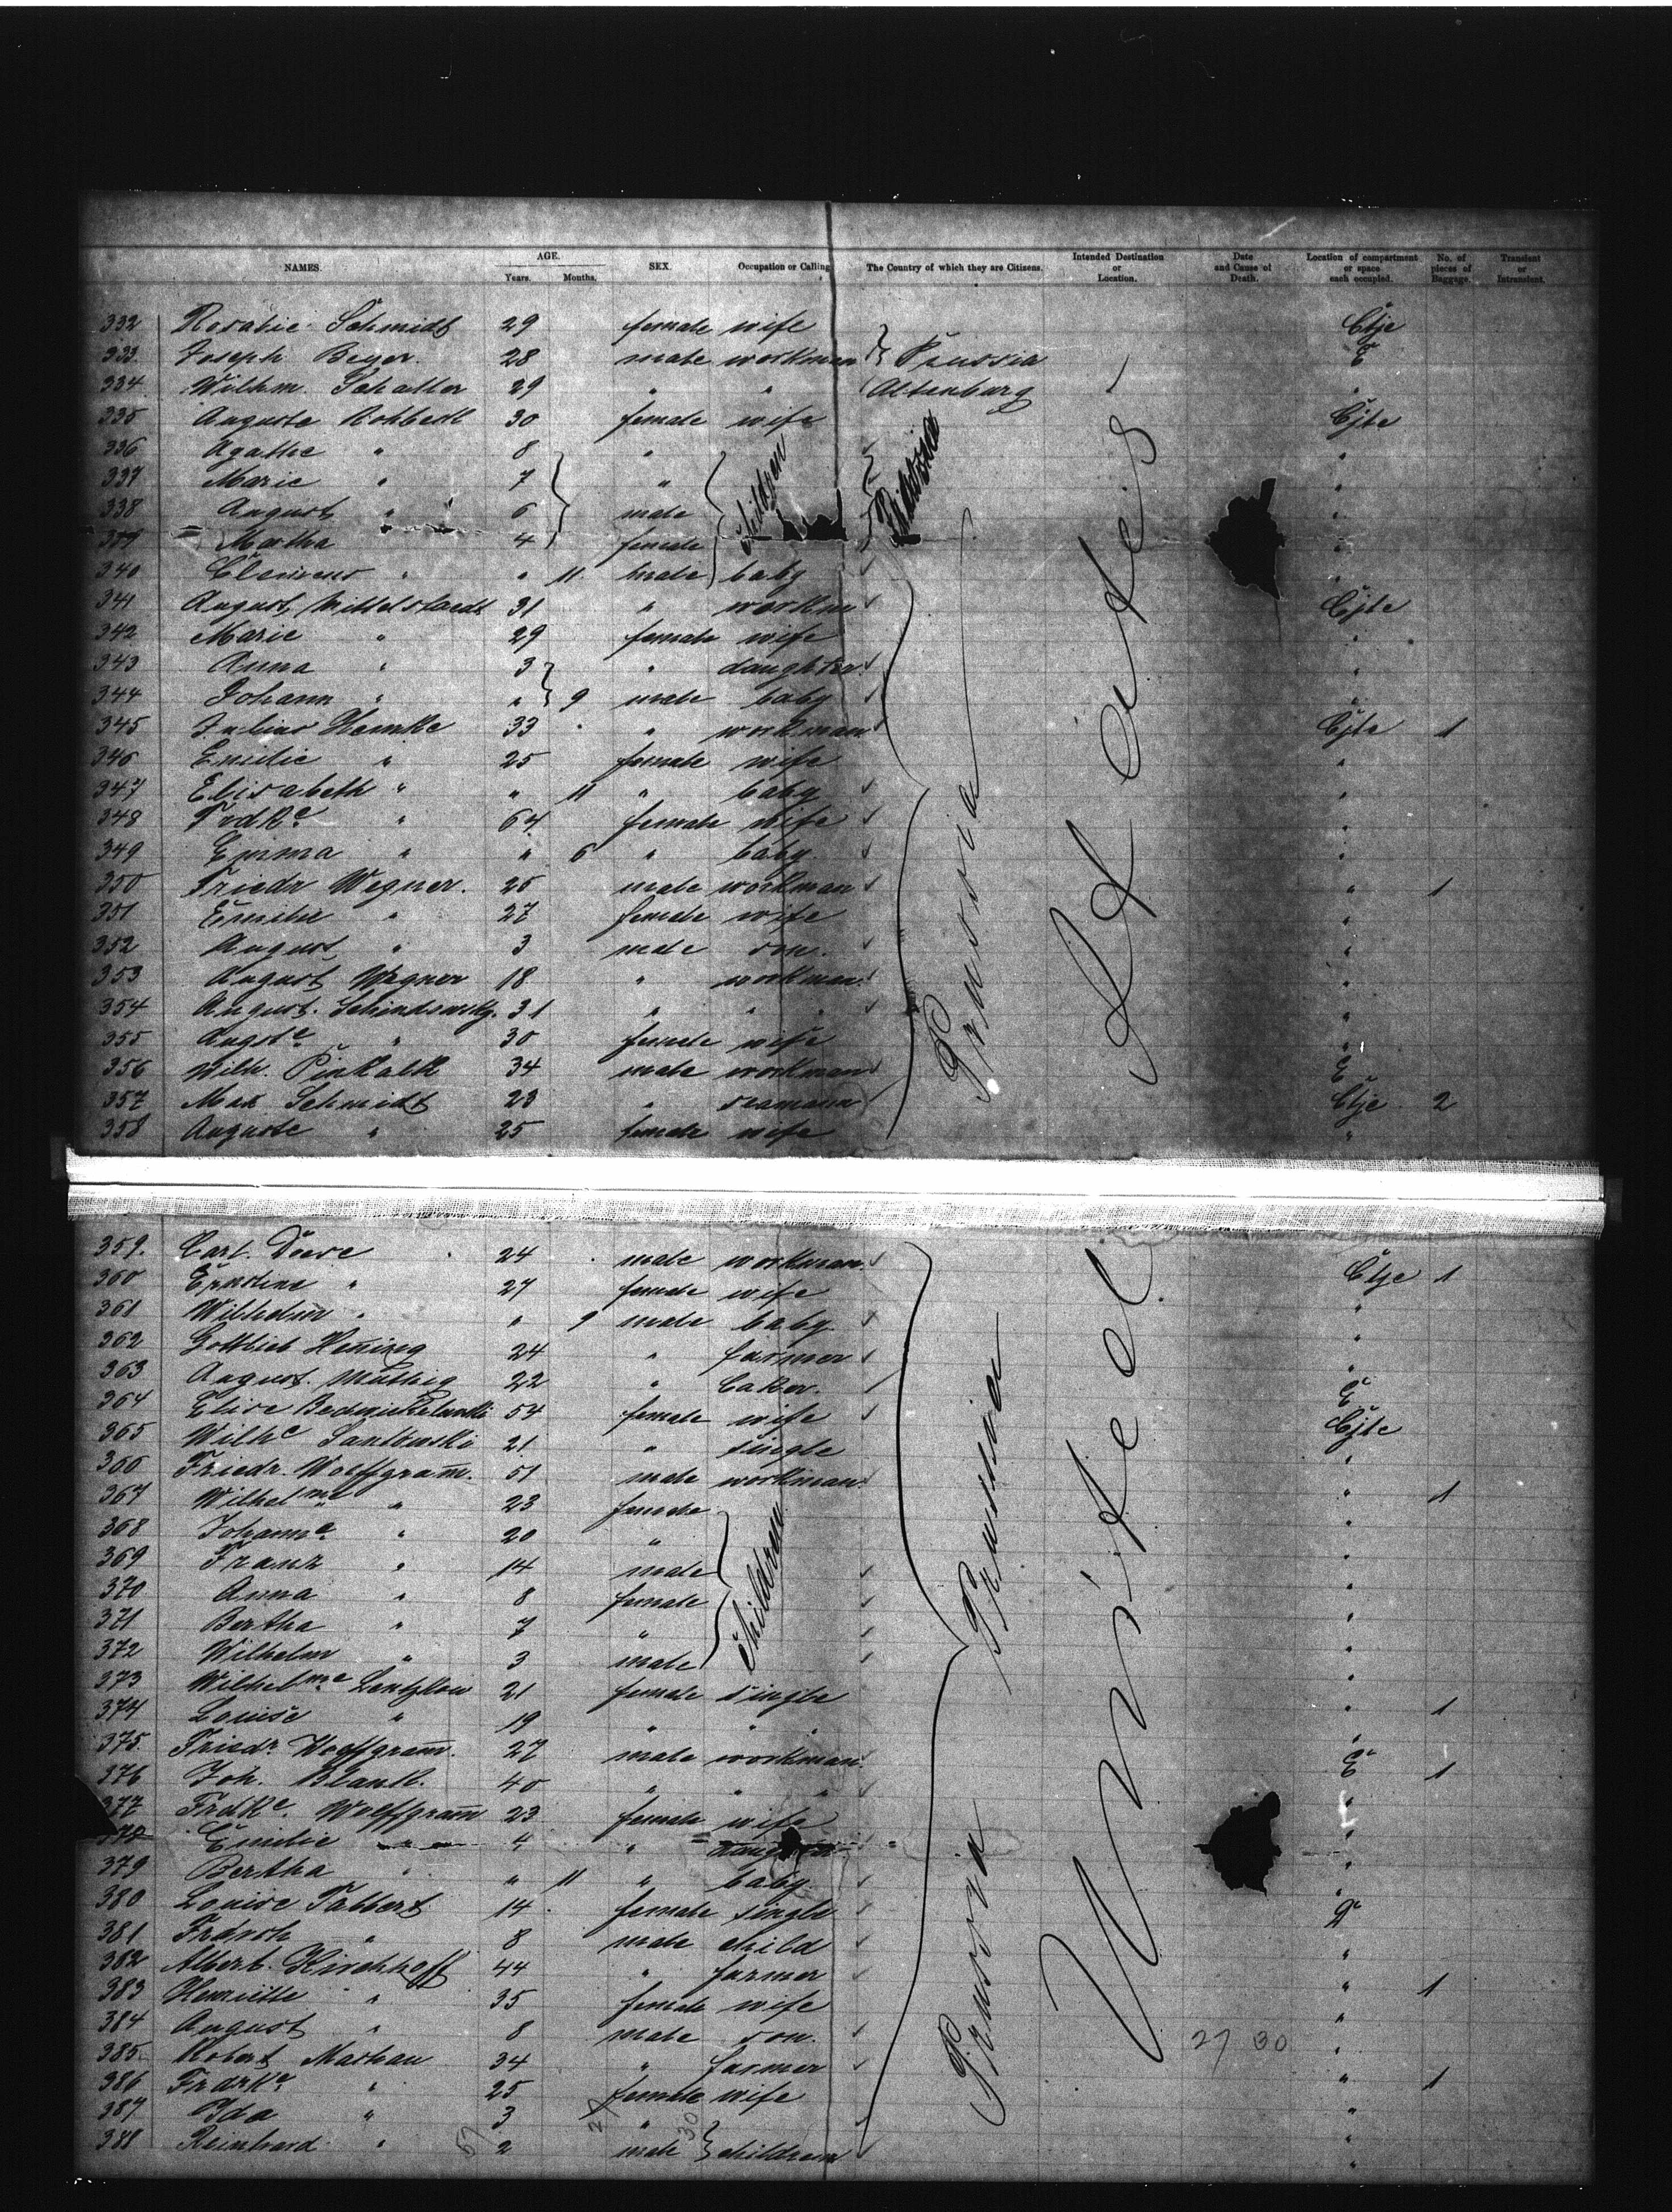 NAMES. AGE. Years. Months. SEX. Occupation or Calling The Country of which they are Citizens. Intended Destination or Location. Date and Cause of Death. Location of compartment or space each occupied. No. of pieces of Baggage. Transient or Intransient.
332 Rosalie Schmidt 29 female wife Ctje
333. Joseph Beyer. 28 male workman } Prussia E
334 Wilhm. Schaller 29 " " Altenburg "
335 Auguste 30 female wife Cjte
336 Agathe " 8 " "
337 Marie " 7 " children Prussia "
338 August " 6 male "
339 Martha 4 female "
340 " " 11 male baby "
341 August Mittelstaedt 31 " workm Cjte
342 Marie " 29 female wife "
343 Anna " 3 " daughter "
344 Johann " " 9 male baby "
345 Julius Hemke 33 " workman Cjte 1
346 Emilie " 25 female wife "
347 Elisabeth " " 11 " baby "
348 Frdke " 64 female wife "
349 Emma " " 6 " baby. "
350 Friedr Wegner. 25 male workman " 1
351 Emilie " 27 female wife "
352 August " 3 male son. "
353 August Wegner 18 " workman. "
354 August. 31 " " "
355 Augste " 30 female wife "
356 Wilh. 34 male workman E
357 Max Schmidt 23 " seamann Ctje 2
358 Auguste " 25 female wife "
Prussia
States
359. Carl. 24 male workman. Ctje 1
360 Ernstine " 27 female wife "
361 Wilhelm " " 9 male baby "
362 Gottlieb Hening 24 " farmer "
363 August. Muthig 22 " baker. E
364 Elise 54 female wife Cjte
365 Wilhe 21 " single "
366 Friedr. Wolffgram̄. 51 male workman " 1
367 Wilhelme " 23 female "
368 Johanne " 20 " "
369 Franz " 14 male children "
370 Anna " 8 female "
371 Bertha " 7 " "
372 Wilhelm " 3 male "
373 Wilhelme 21 female single "
374 Louise " 19 " " " 1
375. Friedr. Wolffgram̄. 27 male workman. E
376 Joh. Blank. 40 " " 1
377 Frdke. Wolffgram̄ 23 female wife "
378 Emilie " 4 " daughter "
379 Bertha " " 11 " baby. "
380 Louise Tabbert 14 female single
381 " 8 male child "
382 Albert Kirchhoff 44 " farmer " 1
383 Henriette " 35 female wife "
384 August " 8 male son. "
385. Robert 34 " farmer "
386 Frdrke " 25 female wife " 1
387 Ida " 3 " "
388 Reinhard " 2 male } children "
Prussia
Prussia
United
27 30
57 27 30